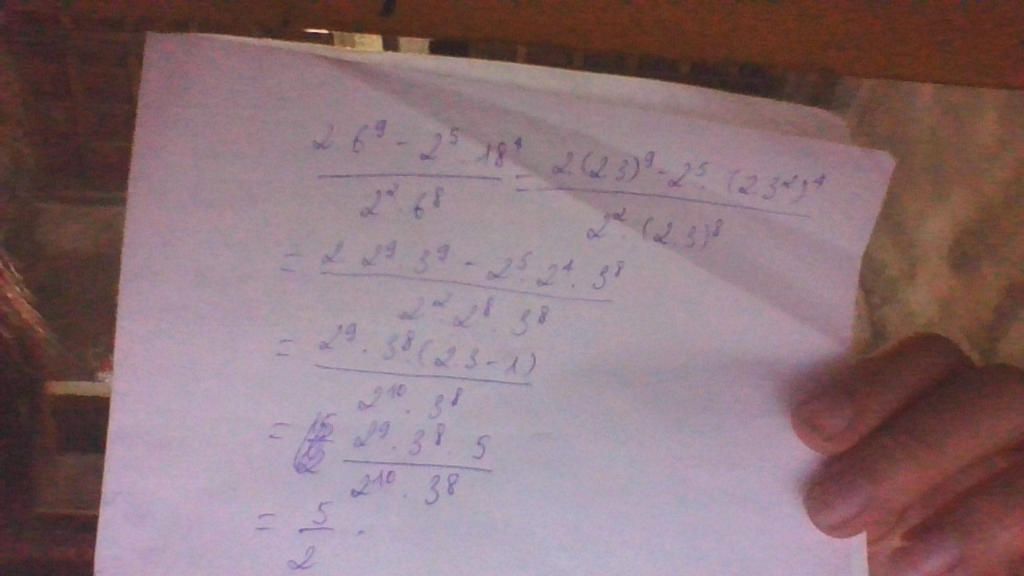 2 6⁹ - 2⁵ 18⁴ / 2² . 6⁸ = 2(2 3)⁹ - 2⁵ . (2 3²)⁴ / 2² . (2.3)⁸
= 2 2⁹ 3⁹ - 2⁵ . 2⁴ . 3⁸ / 2² 2⁸ . 3⁸
= 2⁹ . 3⁸ (2 3 - 1) / 2¹⁰ . 3⁸
= 2⁹ . 3⁸ . 5 / 2¹⁰ . 3⁸
= 5 / 2 .